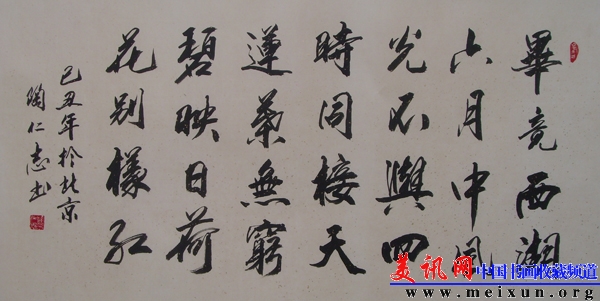 畢竟西湖
六月中風
光不與四
時同接天
蓮葉無窮
碧映日荷
花别樣紅
己丑年於北京
陶仁志书
美讯网 中国书画收藏频道
www.meixun.org